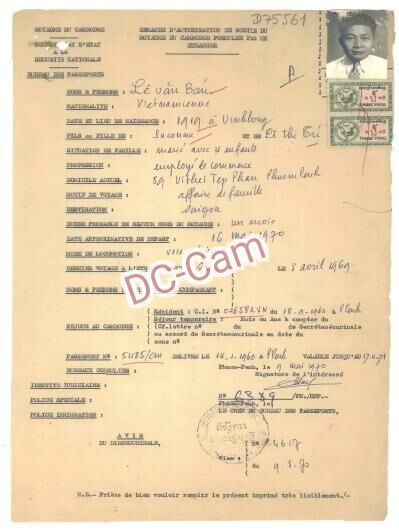 D75561
ROYAUME DU CAMBODGE
SECRETARIAT D'ETAT
A LA
SECURITE NATIONALE
BUREAU DES PASSEPORTS
DEMANDE D'AUTORISATION DE SORTIE DU
ROYAUME DU CAMBODGE FORMULEE PAR UN
ETRANGER
NOMS & PRENOMS : Lê văn Bau
NATIONALITE : Vietnamienne
DATE ET LIEU DE NAISSANCE : 1919 à Vinhlong
FILS ou FILLE de : Inconnu ET de Lê thi Tri
SITUATION DE FAMILLE : marié avec enfants
PROFESSION : employé de commerce
DOMICILE ACTUEL : 59 Vithei Tep Phan Phnom Penh
MOTIF DE VOYAGE : affaire de famille
DESTINATION : Saigon
DUREE PROBABLE DE SEJOUR HORS DU ROYAUME : un mois
DATE APPROXIMATIVE DE DEPART : 16 mai 1970
MODE DE LOCOMOTION :
DERNIER VOYAGE A L'ETR LE 8 avril 1969
NOMS & PRENOMS COMPAGNANT :
DC-Cam
SEJOUR AU CAMBODGE :
Résident : C.I. N° 026582VN du 18.9.1960 à P.Penh
Séjour temporaire : Mois ou Ans à compter du
(Cf.lettre n° du de Secrétasécurinale
ou accord de Secrétasécurinale en date du
sous n°
PASSEPORT N° : 5485/CM DELIVRE LE 14.1.1960 à P.Penh VALABLE JUSQU'AU 17.11.71
BUREAUX CONSULTES : Phnom-Penh, le 9 mai 1970
Signature de l'intéressé
IDENTITE JUDICIAIRE :
POLICE SPECIALE : N° 6389 /SN./BPP.-
LE CHEF DU BUREAU DES PASSEPORTS,
POLICE IMMIGRATION :
AVIS
DU DIRSECURINALE,
N° 4607
du 9.5.70
N.B.- Prière de bien vouloir remplir le présent imprimé très lisiblement./-